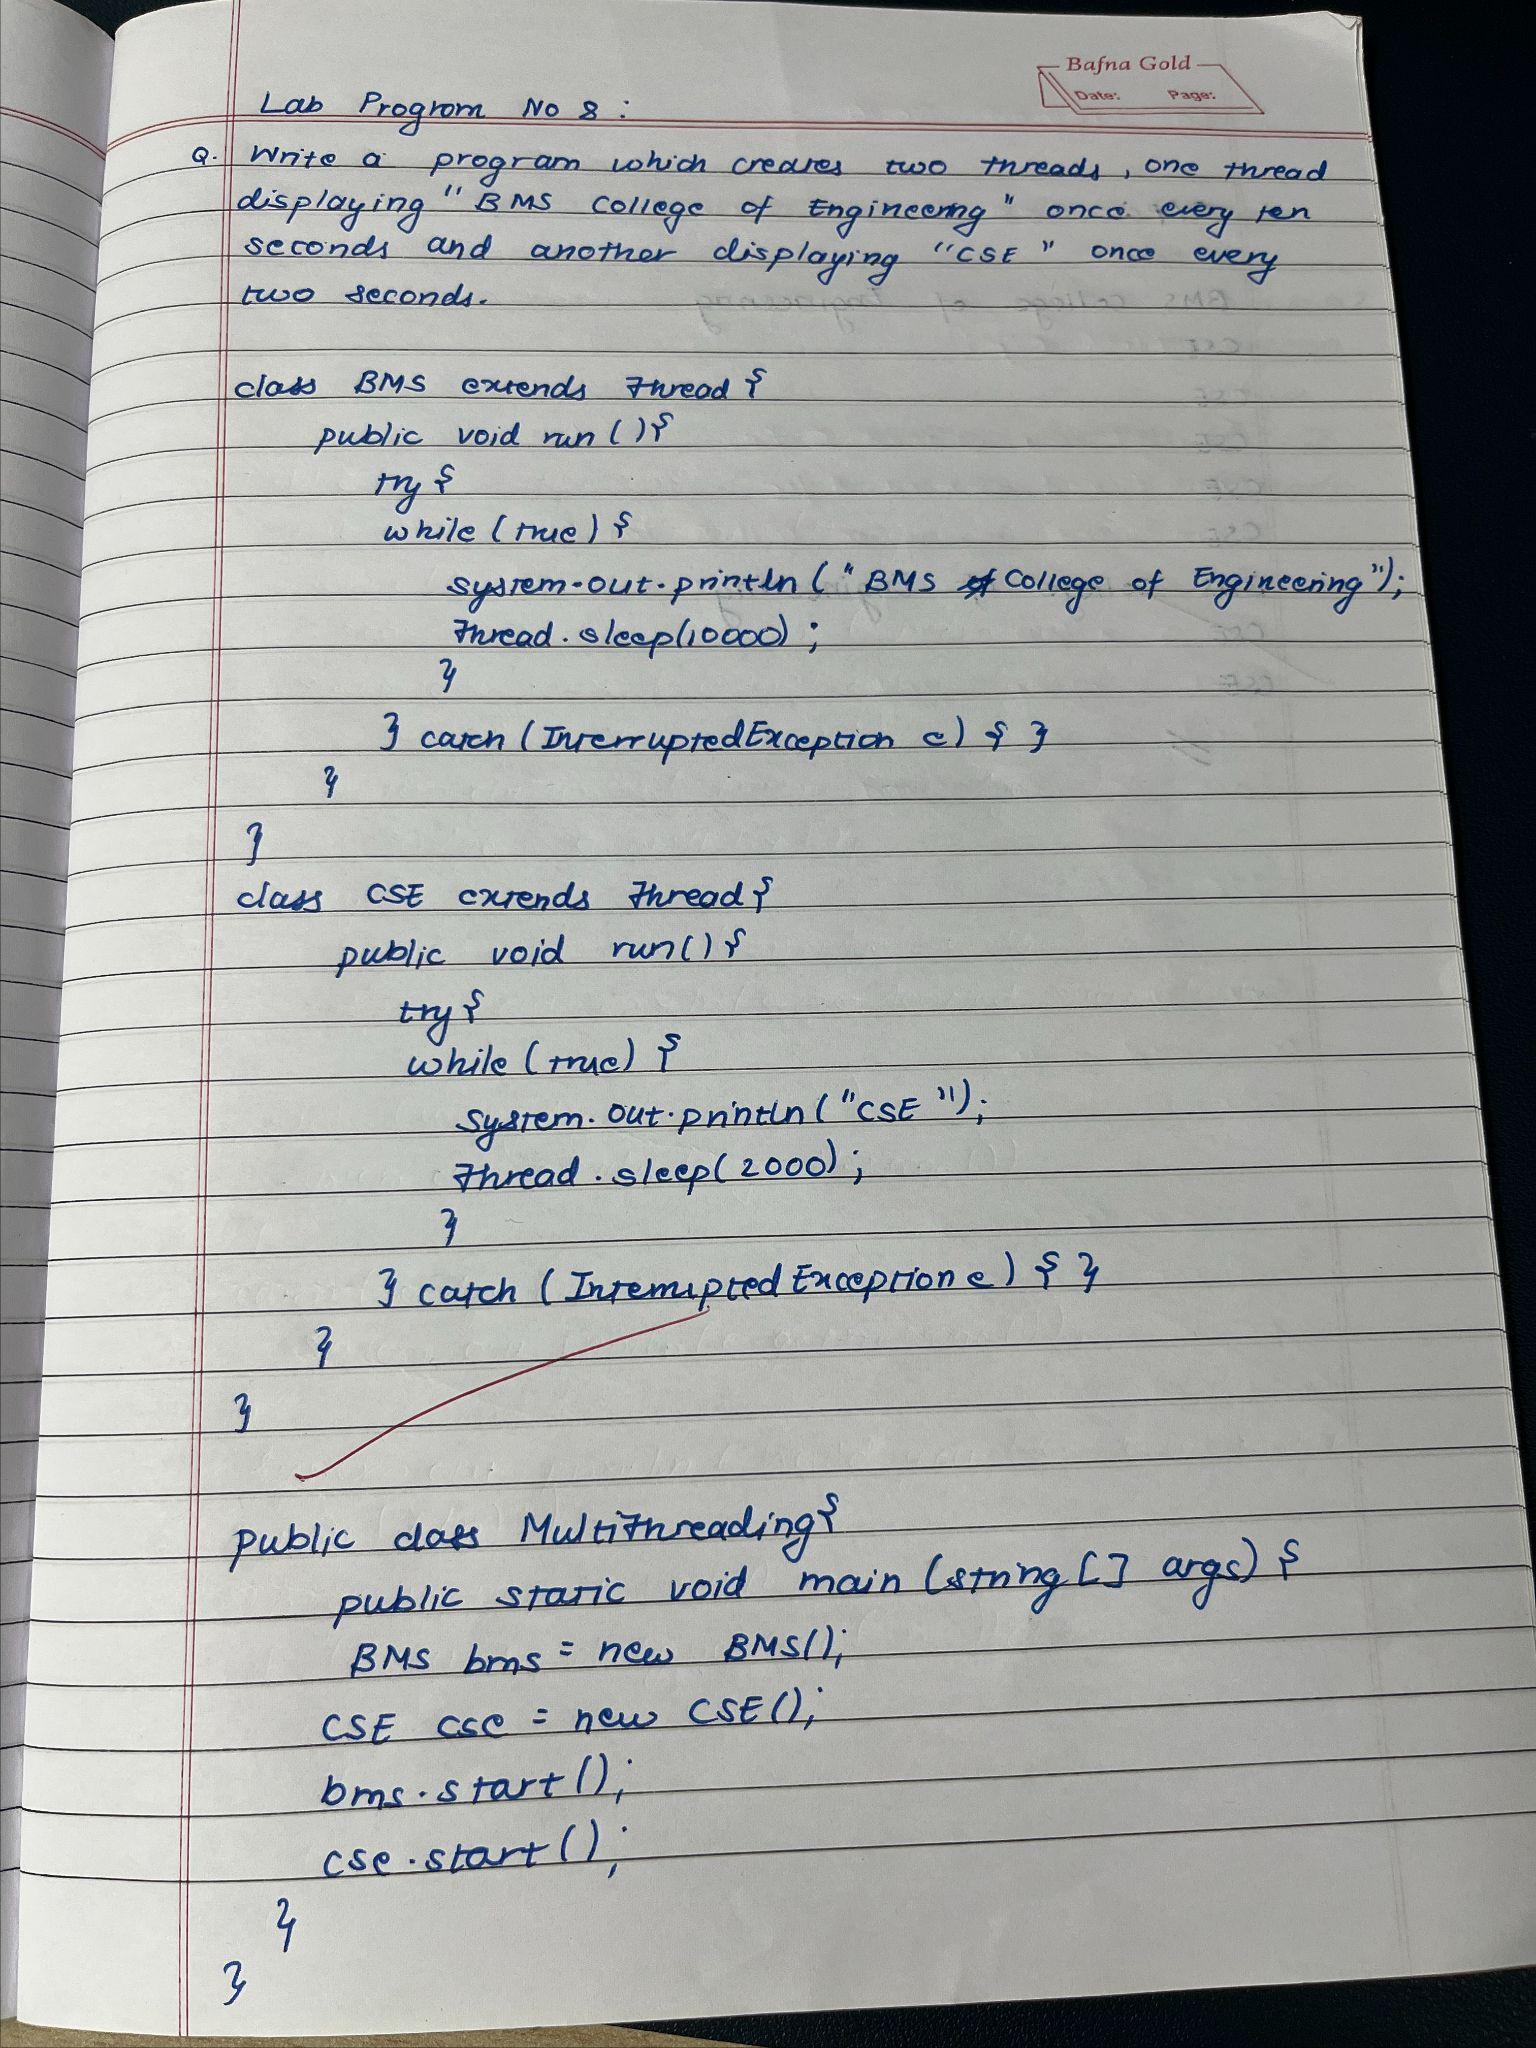 Bafna Gold
Date: Page:
Lab Program No 8 :
Q. Write a program which creates two threads, one thread
displaying "BMS College of Engineering" once every ten
seconds and another displaying "CSE" once every
two seconds.
class BMS extends Thread {
public void run () {
try {
while (true) {
System.out.println ("BMS College of Engineering");
Thread.sleep(10000);
}
} catch (InterruptedException e) { }
}
}
class CSE extends Thread {
public void run() {
try {
while (true) {
System.out.println ("CSE");
Thread.sleep(2000);
}
} catch (InterruptedException e) { }
}
}
public class Multithreading {
public static void main (String [] args) {
BMS bms = new BMS();
CSE cse = new CSE();
bms.start();
cse.start();
}
}